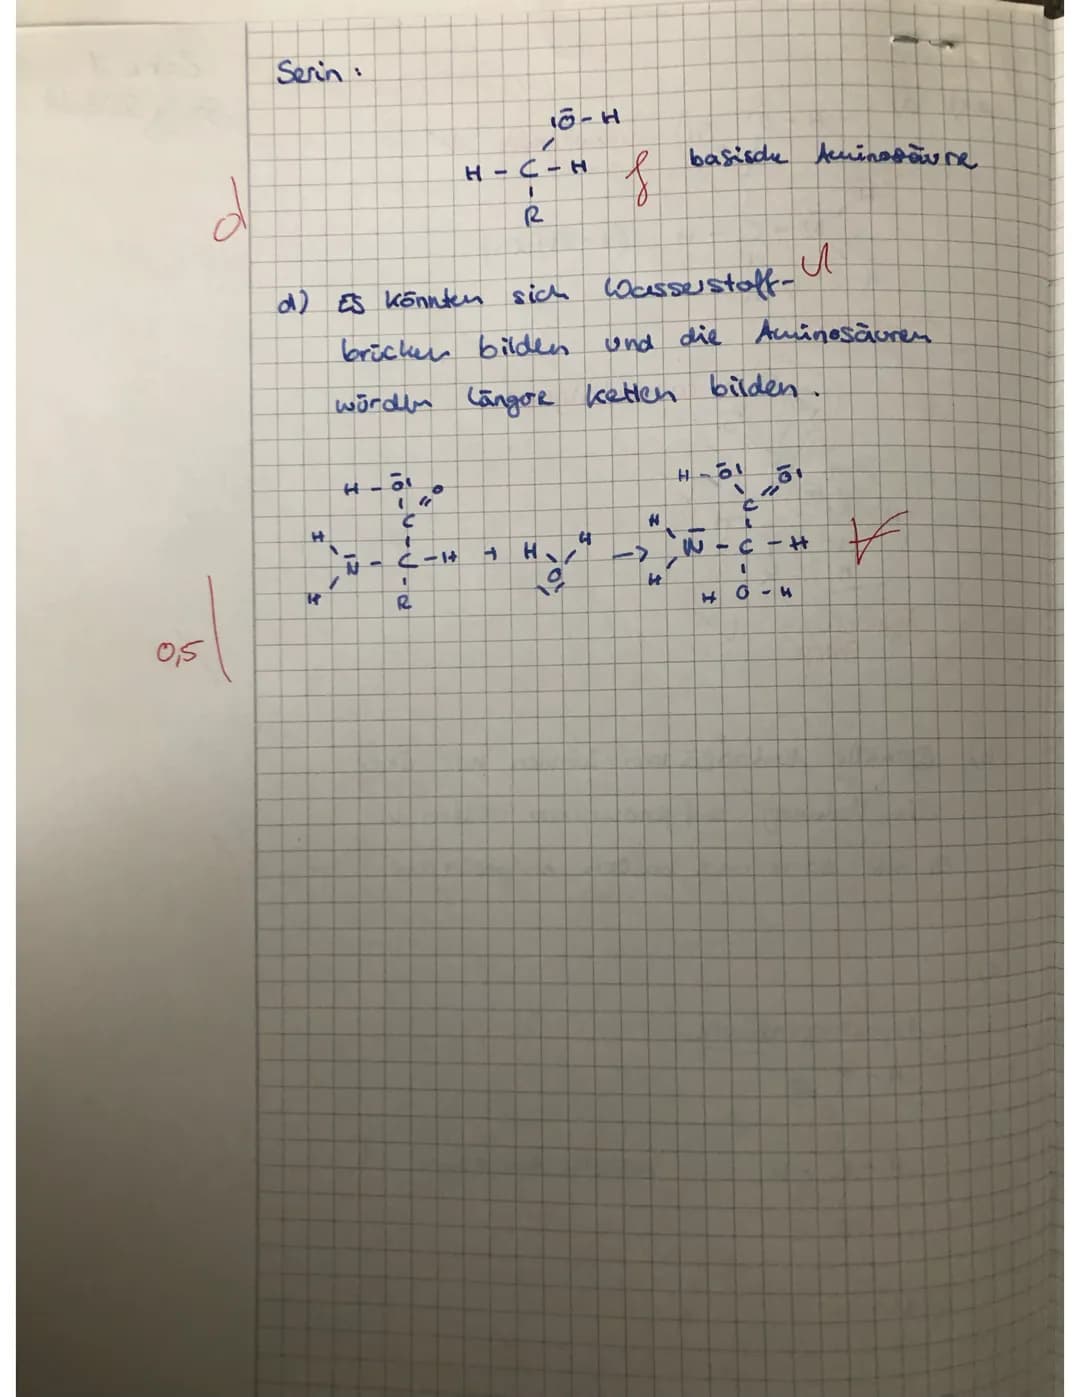 Serin :
|Ō - H
H - C - H f basische Aminosäure
R
d) Es könnten sich Wasserstoff-
brücken bilden und die Aminosäuren
würden längere Ketten bilden .
H - Ō| O H - Ō| Ō|
C C
H N̄ - C - H + H O H -> H N̄ - C - H
H R H H O - H
0,5